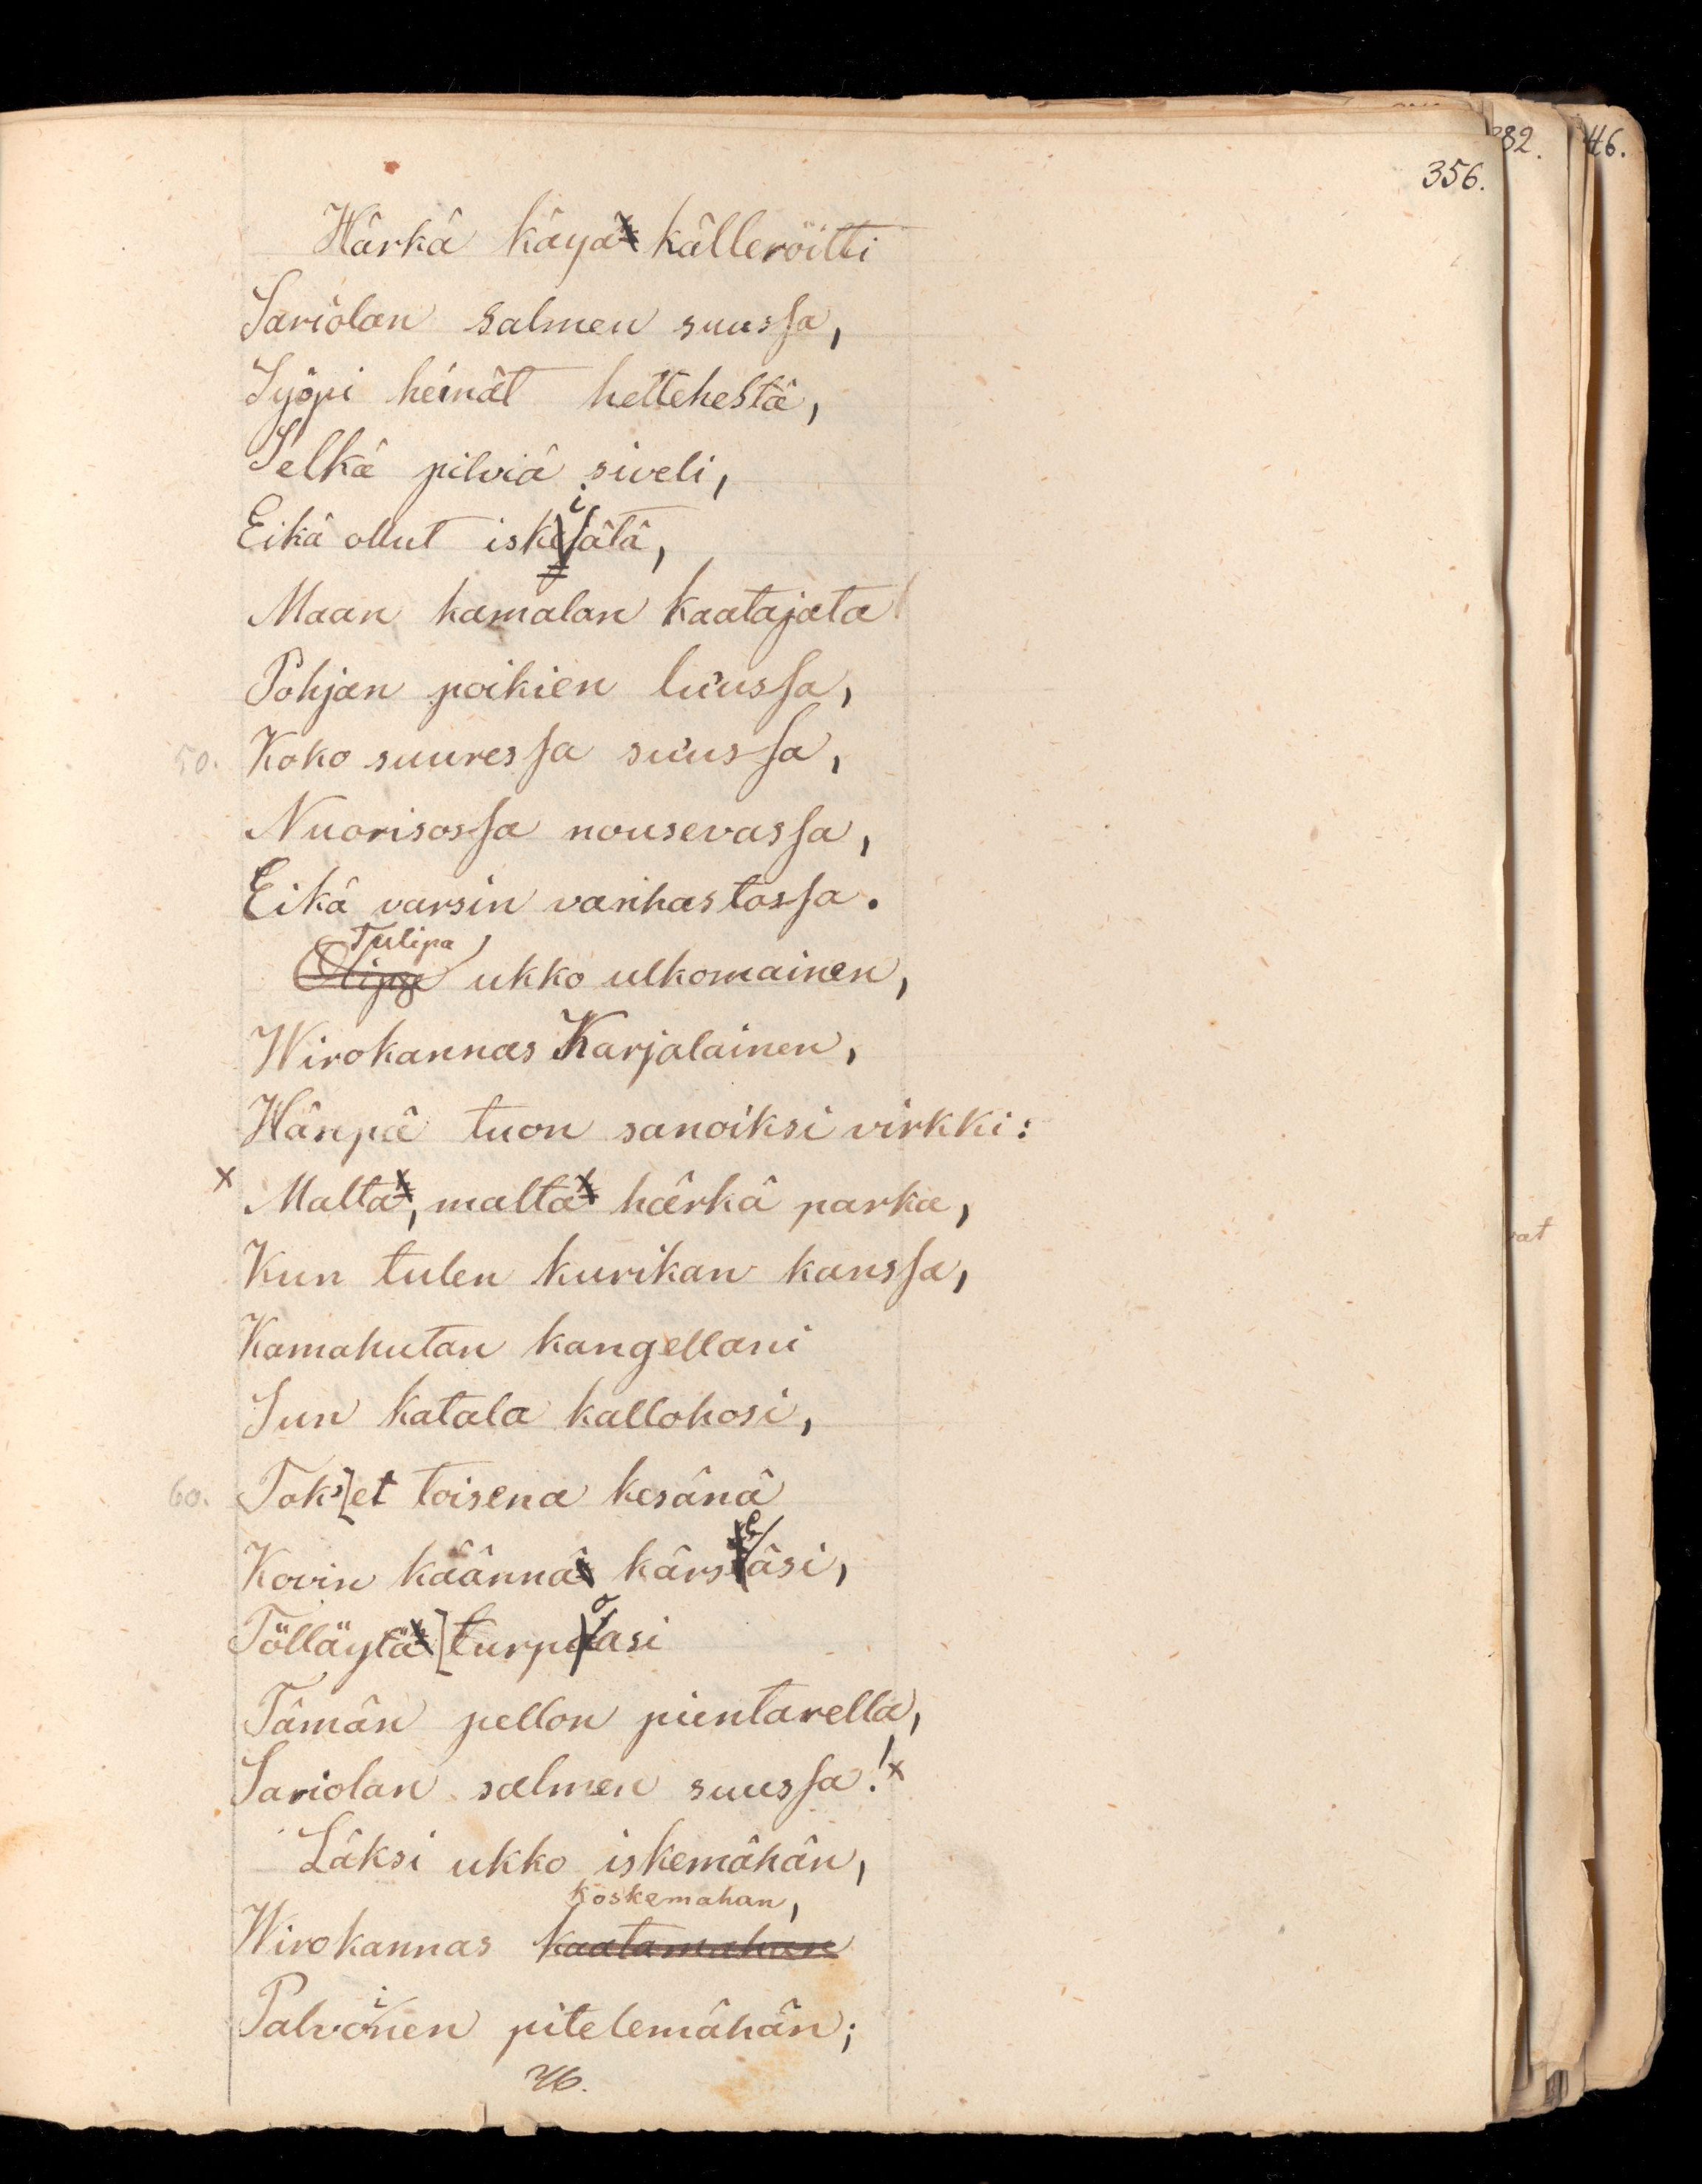 82. 46.
356.
Härkä käyä källeröitti
Sariolan salmen suussa,
Syöpi heinät hettehestä,
Selkä pilviä siveli,
i
Eikä ollut iskejätä,
Maan kamalan kaatajata
Pohjan poikien luussa,
50. Koko suuressa suussa,
Nuorisossa nousevassa,
Eikä varsin vanhastossa.
Tulipa
Olipa ukko ulkomainen,
Wirokannas Karjalainen,
Hänpä tuon sanoiksi virkki:
x Malta, malta härkä parka,
Kun tulen kurikan kanssa,
Kamahutan kangellani
Sun katala kallohosi,
60. Tok' [et toisena kesänä
e
Kovin käännä kärsäsi,
o
Tölläytä [turpaasi
Tämän pellon pientarella,
Sariolan salmen suussa! x
Läksi ukko iskemähän,
koskemahan,
Wirokannas kaatamahan
i
Palvonen pitelemähän;
46.